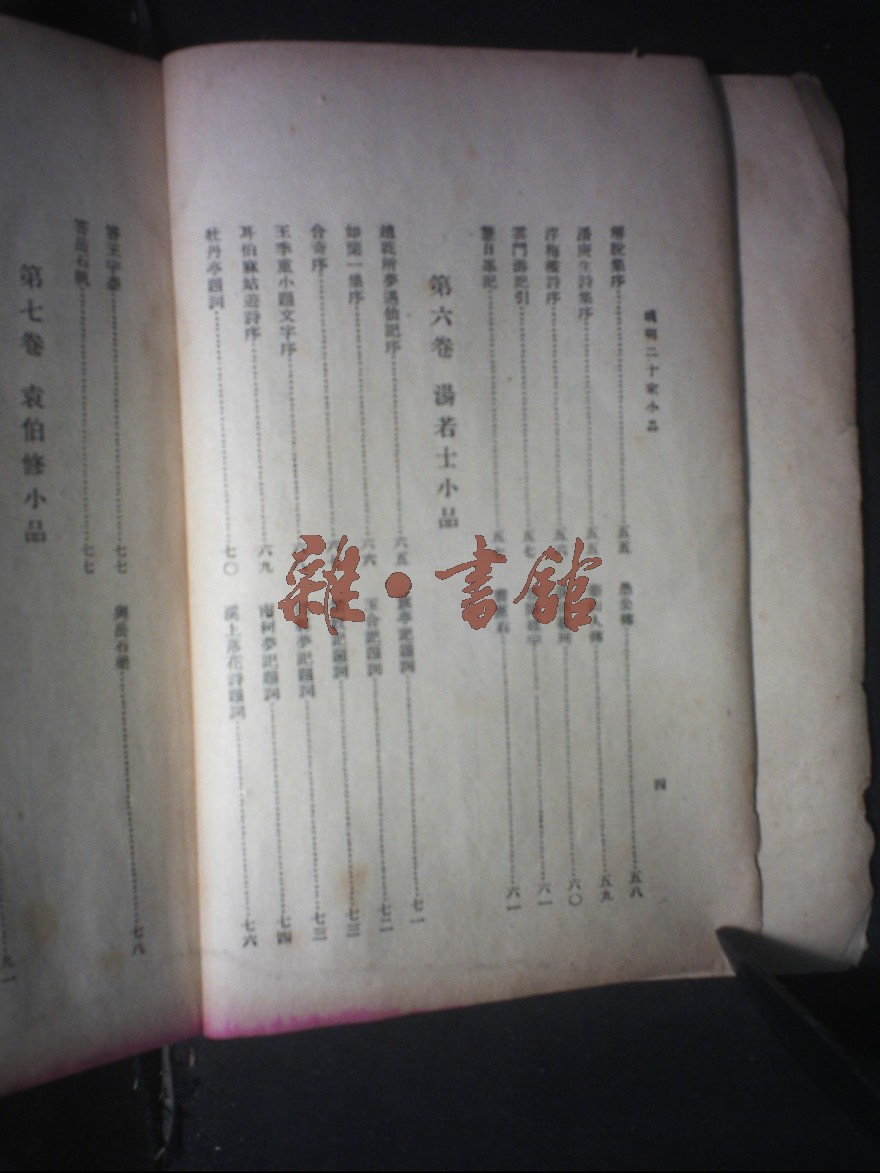 晚明二十家小品
四
解脫集序……五五
潘庚生詩集序……五五
浮梅檻詩序……五六
雲門游記引……五七
愚公傳……五八
五九
六〇
六一
六一
第六卷 湯若士小品
趙乾所夢遇仙記序……六五
如蘭一集序……六六
合奇序
王季重小題文字序
耳伯麻姑遊詩序……六九
牡丹亭題詞……七〇
旗亭記題詞……七一
玉合記題詞……七二
記題詞……七三
夢記題詞……七三
南柯夢記題詞……七四
溪上落花詩題詞……七六
第七卷 袁伯修小品
答王字泰……七七
答岳石帆……七七
與岳石梁……七八
九一
雜·書館